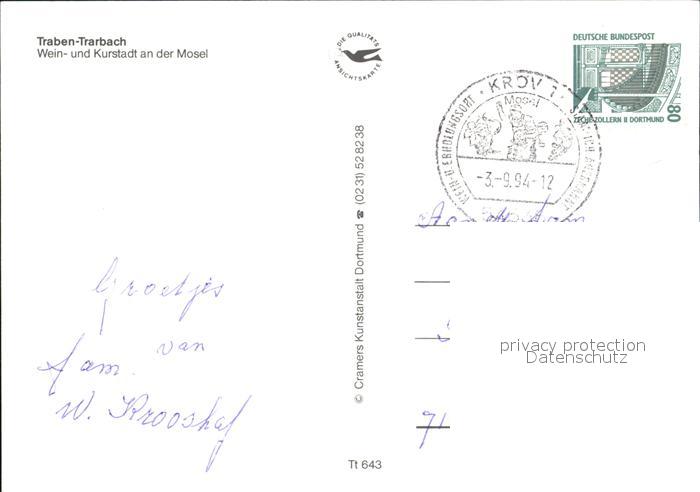 Traben-Trarbach
Wein- und Kurstadt an der Mosel
DIE QUALITÄTS
ANSICHTSKARTE
DEUTSCHE BUNDESPOST
80
ZECHE ZOLLERN II DORTMUND
KRÖV
Mosel
WEIN-U.ERHOLUNGSORT
-3.-9.94-12
© Cramers Kunstanstalt Dortmund ☎ (02 31) 52 82 38
Groetjes
van
fam.
W. Krooshof
privacy protection
Datenschutz
Tt 643